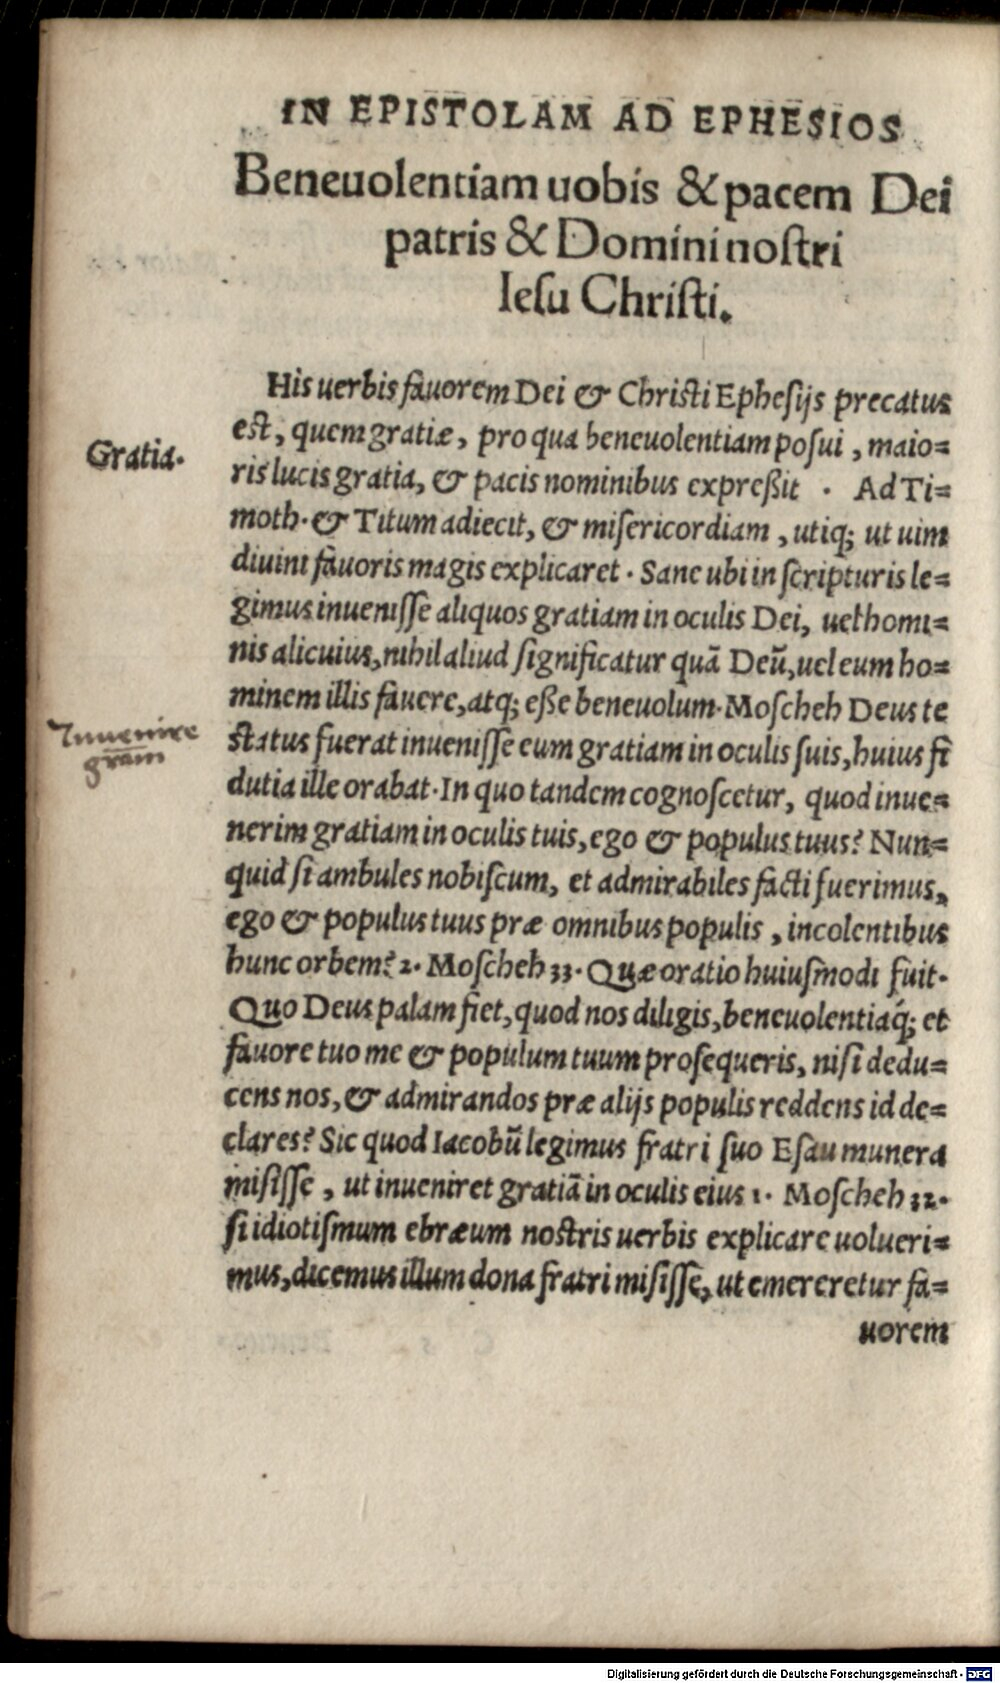 IN EPISTOLAM AD EPHESIOS
Beneuolentiam uobis & pacem Dei
patris & Domini nostri
Iesu Christi.
His uerbis fauorem Dei & Christi Ephesijs precatus
est, quem gratiæ, pro qua beneuolentiam posui, maio=
Gratia.
ris lucis gratia, & pacis nominibus expreßit. Ad Ti=
moth. & Titum adiecit, & misericordiam, utiq; ut uim
diuini fauoris magis explicaret. Sane ubi in scripturis le=
gimus inuenisse aliquos gratiam in oculis Dei, uel homi=
nis alicuius, nihil aliud significatur quã Deũ, uel eum ho=
minem illis fauere, atq; eße beneuolum. Moscheh Deus te
Inuenire
gram̄
status fuerat inuenisse eum gratiam in oculis suis, huius fi
dutia ille orabat. In quo tandem cognoscetur, quod inue=
nerim gratiam in oculis tuis, ego & populus tuus? Nun=
quid si ambules nobiscum, et admirabiles facti fuerimus,
ego & populus tuus præ omnibus populis, incolentibus
hunc orbem? 2. Moscheh 33. Quæ oratio huiusmodi fuit.
Quo Deus palam fiet, quod nos diligis, beneuolentiaq́; et
fauore tuo me & populum tuum prosequeris, nisi dedu=
cens nos, & admirandos præ alijs populis reddens id de=
clares? Sic quod Iacobũ legimus fratri suo Esau munera
misisse, ut inueniret gratiã in oculis eius 1. Moscheh 32.
si idiotismum ebræum nostris uerbis explicare uolueri=
mus, dicemus illum dona fratri misisse, ut emereretur fa=
uorem
Digitalisierung gefördert durch die Deutsche Forschungsgemeinschaft - DFG